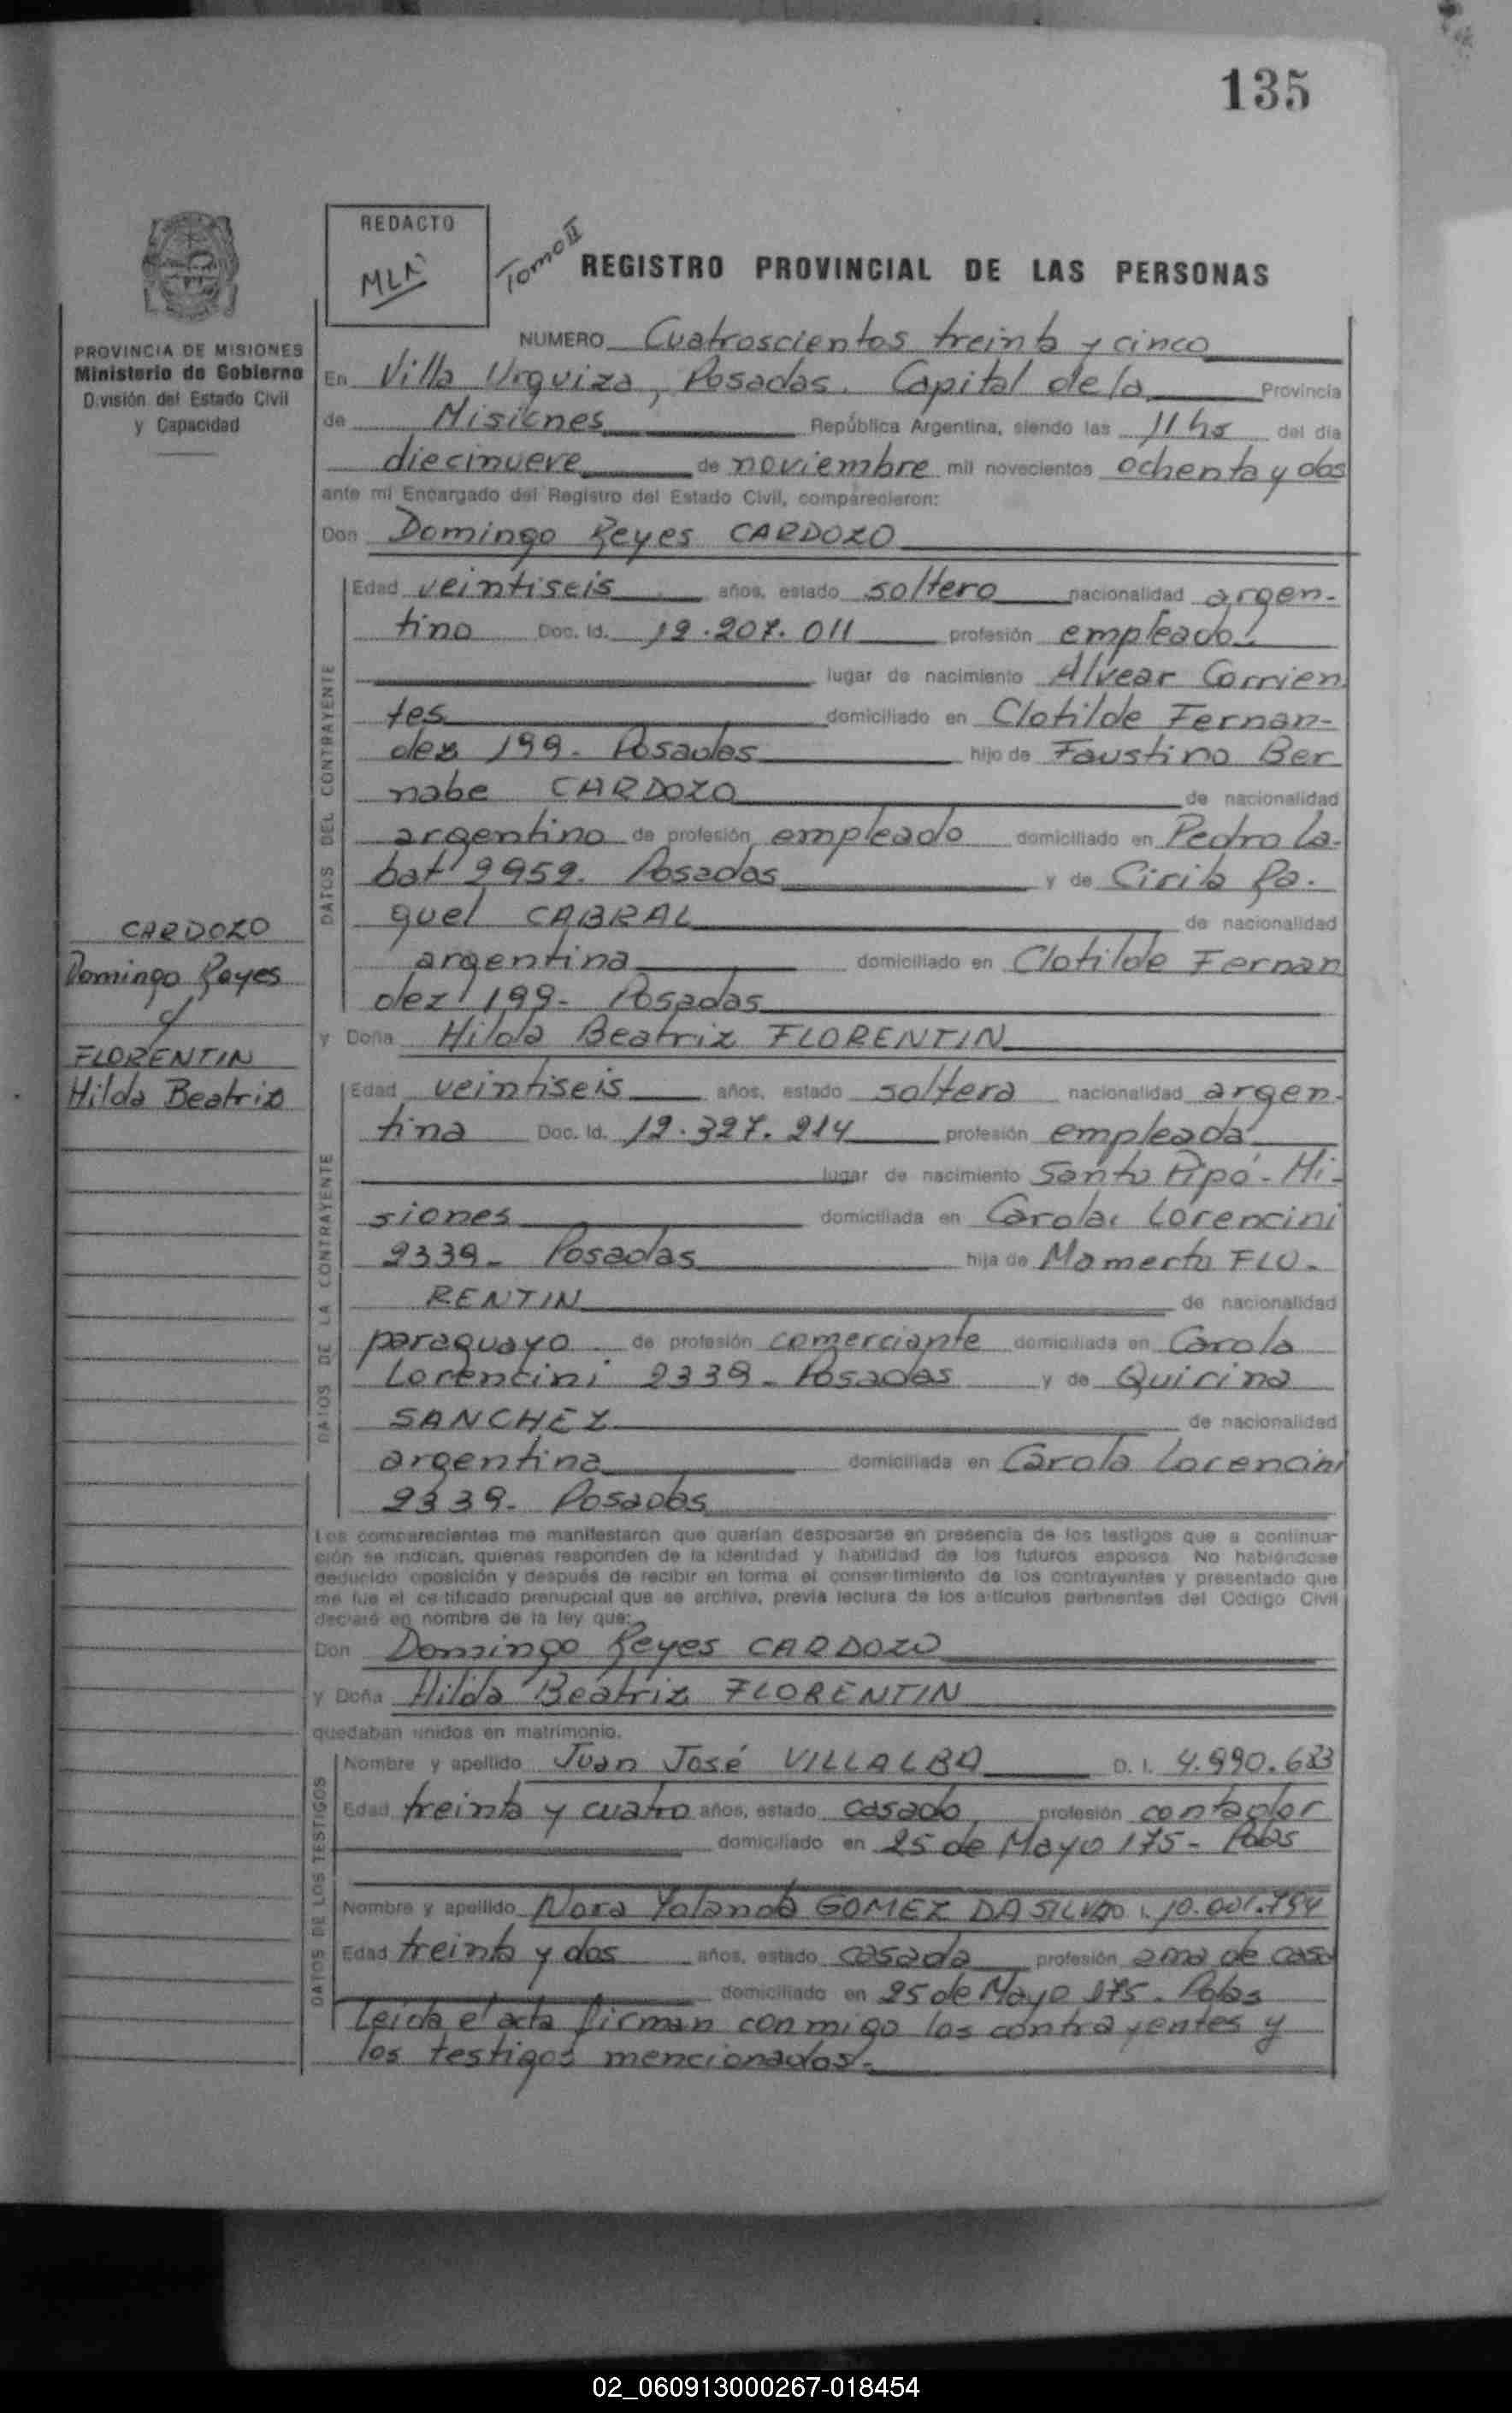 135
REDACTO
MLN
Tomo II
REGISTRO PROVINCIAL DE LAS PERSONAS
PROVINCIA DE MISIONES
Ministerio de Gobierno
División del Estado Civil
y Capacidad
NUMERO Cuatroscientos treinta y cinco
En Villa Urquiza, Posadas. Capital de la Provincia
de Misiones República Argentina, siendo las 11 hs del día
diecinueve de noviembre mil novecientos ochenta y dos
ante mí Encargado del Registro del Estado Civil, comparecieron:
Don Domingo Reyes CARDOZO
DATOS DEL CONTRAYENTE
Edad veintiseis años, estado soltero nacionalidad argen-
tino Doc. Id. 12.207.011 profesión empleado
lugar de nacimiento Alvear Corrien
tes domiciliado en Clotilde Fernan-
dez 199- Posadas hijo de Faustino Ber
nabe CARDOZO de nacionalidad
argentino de profesión empleado domiciliado en Pedro La-
bat 2952. Posadas y de Cirila Ra.
quel CABRAL de nacionalidad
argentina domiciliado en Clotilde Fernan
dez 199- Posadas
CARDOZO
Domingo Reyes
c/
FLORENTIN
Hilda Beatriz
y Doña Hilda Beatriz FLORENTIN
DATOS DE LA CONTRAYENTE
Edad veintiseis años, estado soltera nacionalidad argen-
tina Doc. Id. 12.327.214 profesión empleada
lugar de nacimiento Santo Pipó- Mi-
siones domiciliada en Carola Lorencini
2339- Posadas hija de Mamerto FLO-
RENTIN de nacionalidad
paraguayo de profesión comerciante domiciliada en Carola
Lorencini 2339- Posadas y de Quirina
SANCHEZ de nacionalidad
argentina domiciliada en Carola Lorencini
2339- Posadas
Los comparecientes me manifestaron que querían desposarse en presencia de los testigos que a continua-
ción se indican, quienes responden de la identidad y habilidad de los futuros esposos. No habiéndose
deducido oposición y después de recibir en forma el consentimiento de los contrayentes y presentado que
me fue el certificado prenupcial que se archiva, previa lectura de los artículos pertinentes del Código Civil
declaré en nombre de la ley que:
Don Domingo Reyes CARDOZO
y Doña Hilda Beatriz FLORENTIN
quedaban unidos en matrimonio.
DATOS DE LOS TESTIGOS
Nombre y apellido Juan José VILLALBA D. I. 4.990.633
Edad treinta y cuatro años, estado casado profesión contador
domiciliado en 25 de Mayo 175- Pdas
Nombre y apellido Nora Yolanda GOMEZ DA SILVA D. I. 10.001.794
Edad treinta y dos años, estado casada profesión ama de casa
domiciliado en 25 de Mayo 175- Pdas
Leida el acta firman conmigo los contrayentes y
los testigos mencionados-
02_060913000267-018454